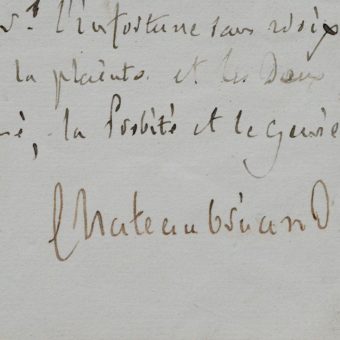 l'infortune sans
la plainte et les deux
la Probité et le génie
Chateaubriand